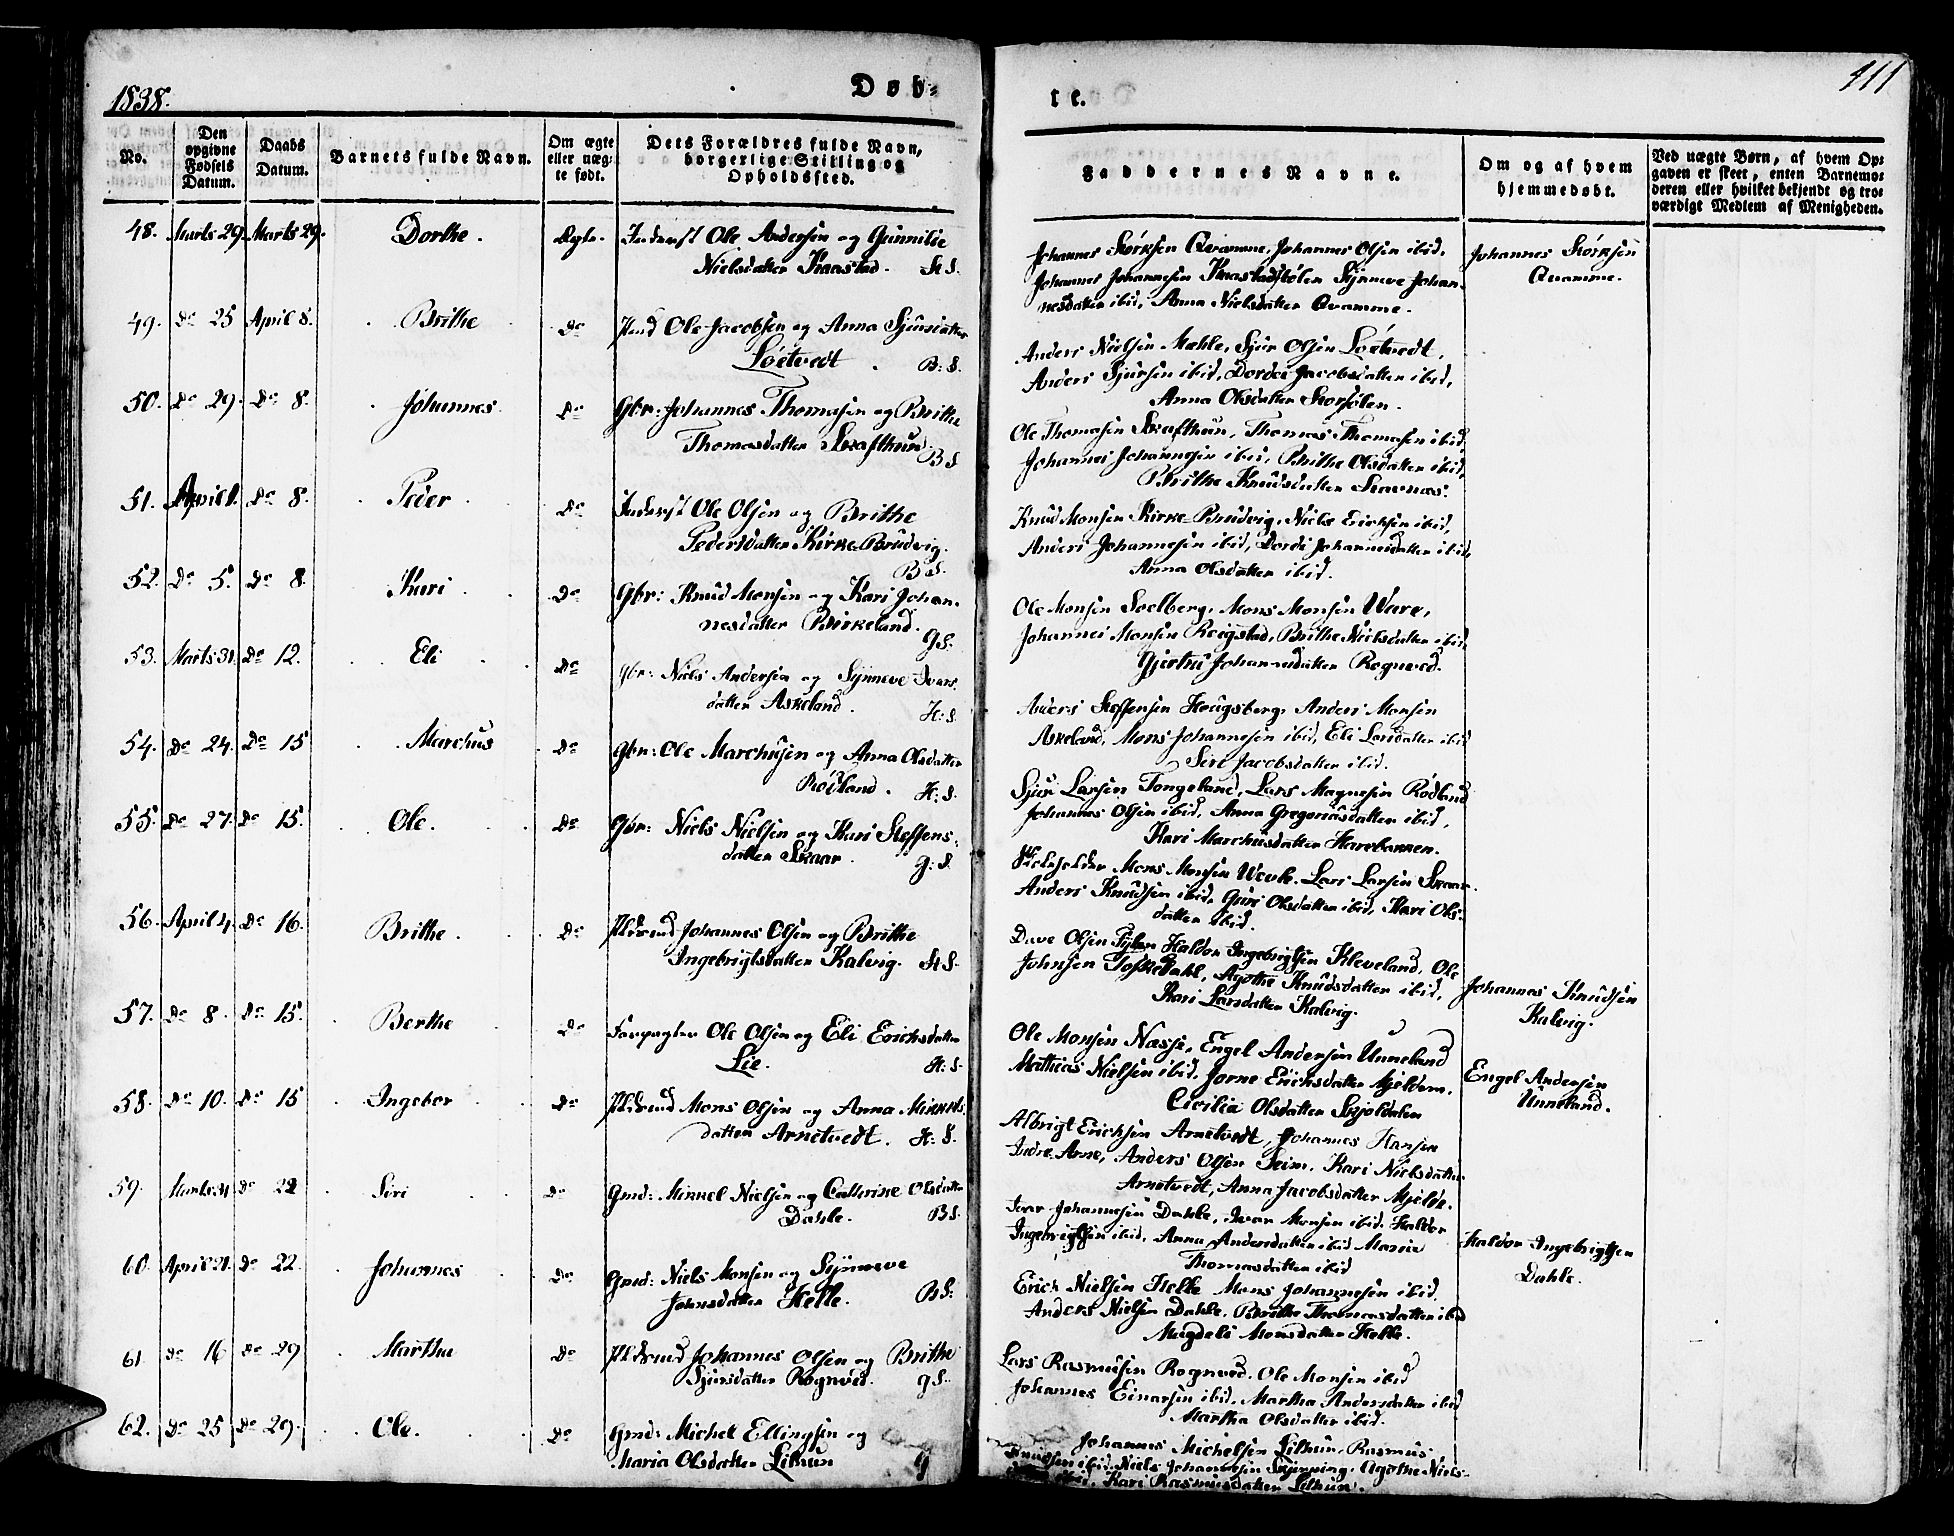 1838.
Døb-
te.
111
No.
Den opgivne Fødsels Datum.
Daabs Datum.
Barnets fulde Navn.
Om ægte eller næg- te født.
Dets Forældres fulde Navn, borgerlige Stilling og Opholdssted.
Faddernes Navne.
Om og af hvem hjemmedøbt.
Ved uægte Børn, af hvem Op- gaven er skeet, enten Barnemo- deren eller hvilket bekjendt og tro- værdigt Medlem af Menigheden.
48. Marts 29. Marts 29. Dorthe. Ægte. Inderst Ole Andersen og Gunnilie
Nielsdatter Haastad. H S.
Johannes Størksen Qvamme, Johannes Olsen ibid,
Johannes Johannesen Haastadstølen Synneve Johan-
nesdatter ibid, Anna Nielsdatter Qvamme.
Johannes Størksen
Qvamme.
49. Do 25 April 8. Brithe Do Ole Jacobsen og Anna Sjursdatter
Løetvedt. B: S.
Anders Nielsen Mæhle, Sjur Olsen Løetvedt,
Anders Sjursen ibid, Dordei Jacobsdatter ibid,
Anna Olsdatter
50. Do 29. Do 8. Johannes. Do Gbr: Johannes Thomasen og Brithe
Thomasdatter Skafthun. B S
Ole Thomasen Skafthun, Thomas Thomasen ibid,
Johannes Johannesen ibid, Brithe Olsdatter ibid,
Brithe Knudsdatter
51. April 1. Do 8. Peder Do Inderst Ole Olsen og Brithe
Pedersdatter Kirke-Brudvig.
B S.
Knud Monsen Kirke-Brudvig, Niels Ericksen ibid,
Anders Johannesen ibid, Dordei Johannesdatter ibid,
Anna Olsdatter ibid.
52. Do 5. Do 8. Kari Do Gbr: Knud Monsen og Kari Johan-
nesdatter Birkeland. G S.
Ole Monsen Soelberg, Mons Monsen Ware,
Johannes Monsen Reigstad, Brithe Nielsdatter ibid,
Gjertrü Johannesdatter Rogneved.
53. Marts 31. Do 12. Eli Do Gbr: Niels Andersen og Synneve Ivers
datter Askeland. H: S.
Anders Steffensen Hougsberg, Anders Monsen
Askeland, Mons Johannesen ibid, Eli Larsdatter ibid
Siri Jacobsdatter ibid.
54. Do 24. Do 15 Marchus Do Gbr: Ole Marchusen og Anna Olsdatter
Rødland. H: S.
Sjur Larsen Tongeland, Lars Magnesen Rødland
Johannes Olsen ibid, Anna Gregoriusdatter ibid,
Kari Marchusdatter
55. Do 27. Do 15. Ole. Do Gbr: Niels Nielsen og Kari Steffens-
datter Skaar. G: S
Mons Monsen Lars Larsen Skaar.
Anders Knudsen ibid, Guri Olsdatter ibid, Kari Ols-
datter ibid.
56. April 4. Do 16. Brithe. Do Pldsmd Johannes Olsen og Brithe
Ingebrigtsdatter Kalvig. H S.
Olsen Haldor Ingebrigtsen Kleveland, Ole
Johnsen Toskedahl, Agothe Knudsdatter ibid,
Kari Larsdatter Kalvig.
Johannes Knudsen
Kalvig.
57. Do 8. Do 15. Berthe Do Forpagter Ole Olsen og Eli Erichsdatter
Lie. H: S.
Ole Monsen Næsse, Engel Andersen Unneland
Mathias Nielsen ibid, Jorne Erichsdatter Mjeldem,
Cicilia Olsdatter Skjoldalen
Engel Andersen
Unneland.
58. Do 10. Do 15 Ingebor Do Pldsmd Mons Olsen og Anna Mikkels
datter Arnetvedt. H: S.
Albrigt Erichsen Arnetvedt, Johannes Hansen
Indre Arne, Anders Olsen Seim, Kari Nielsdatter
Arnetvedt, Anna Jacobsdatter Mjelde.
59. Marts 31 Do 22 Siri Do Gmd: Mikkel Nielsen og Catterine Olsdatter
Dahle. B S.
Iver Johannesen Dahle, Ivar Monsen ibid, Haldor
Ingebrigtsen ibid, Anna Andersdatter ibid Marie
Thomasdatter ibid
Haldor Ingebrigtsen
Dahle.
60. April 21. Do 22. Johannes Do Gmd: Niels Monsen og Synneve
Johnsdatter Helle. B S:
Erich Nielsen Helle Mons Johannesen ibid,
Anders Nielsen Dahle, Brithe Thomasdatter ibid
Magdeli Monsdatter Helle.
61. Do 16 Do 29 Martha Do Pldsmd Johannes Olsen og Brithe
Sjursdatter Rogneved. G S.
Lars Rasmusen Rogneved. Ole Monsen ibid
Johannes Einarsen ibid, Martha Andersdatter ibid
Martha Olsdatter ibid.
62. Do 25 Do 29. Ole. Do Gmd: Michel Ellingsen og
Maria Olsdatter Lilhun G
Johannes Michelsen Lilhun, Rasmus
Knudsen ibid, Niels Johannesen Agothe Niels-
ibid, Kari Rasmusdatter Lilhun.